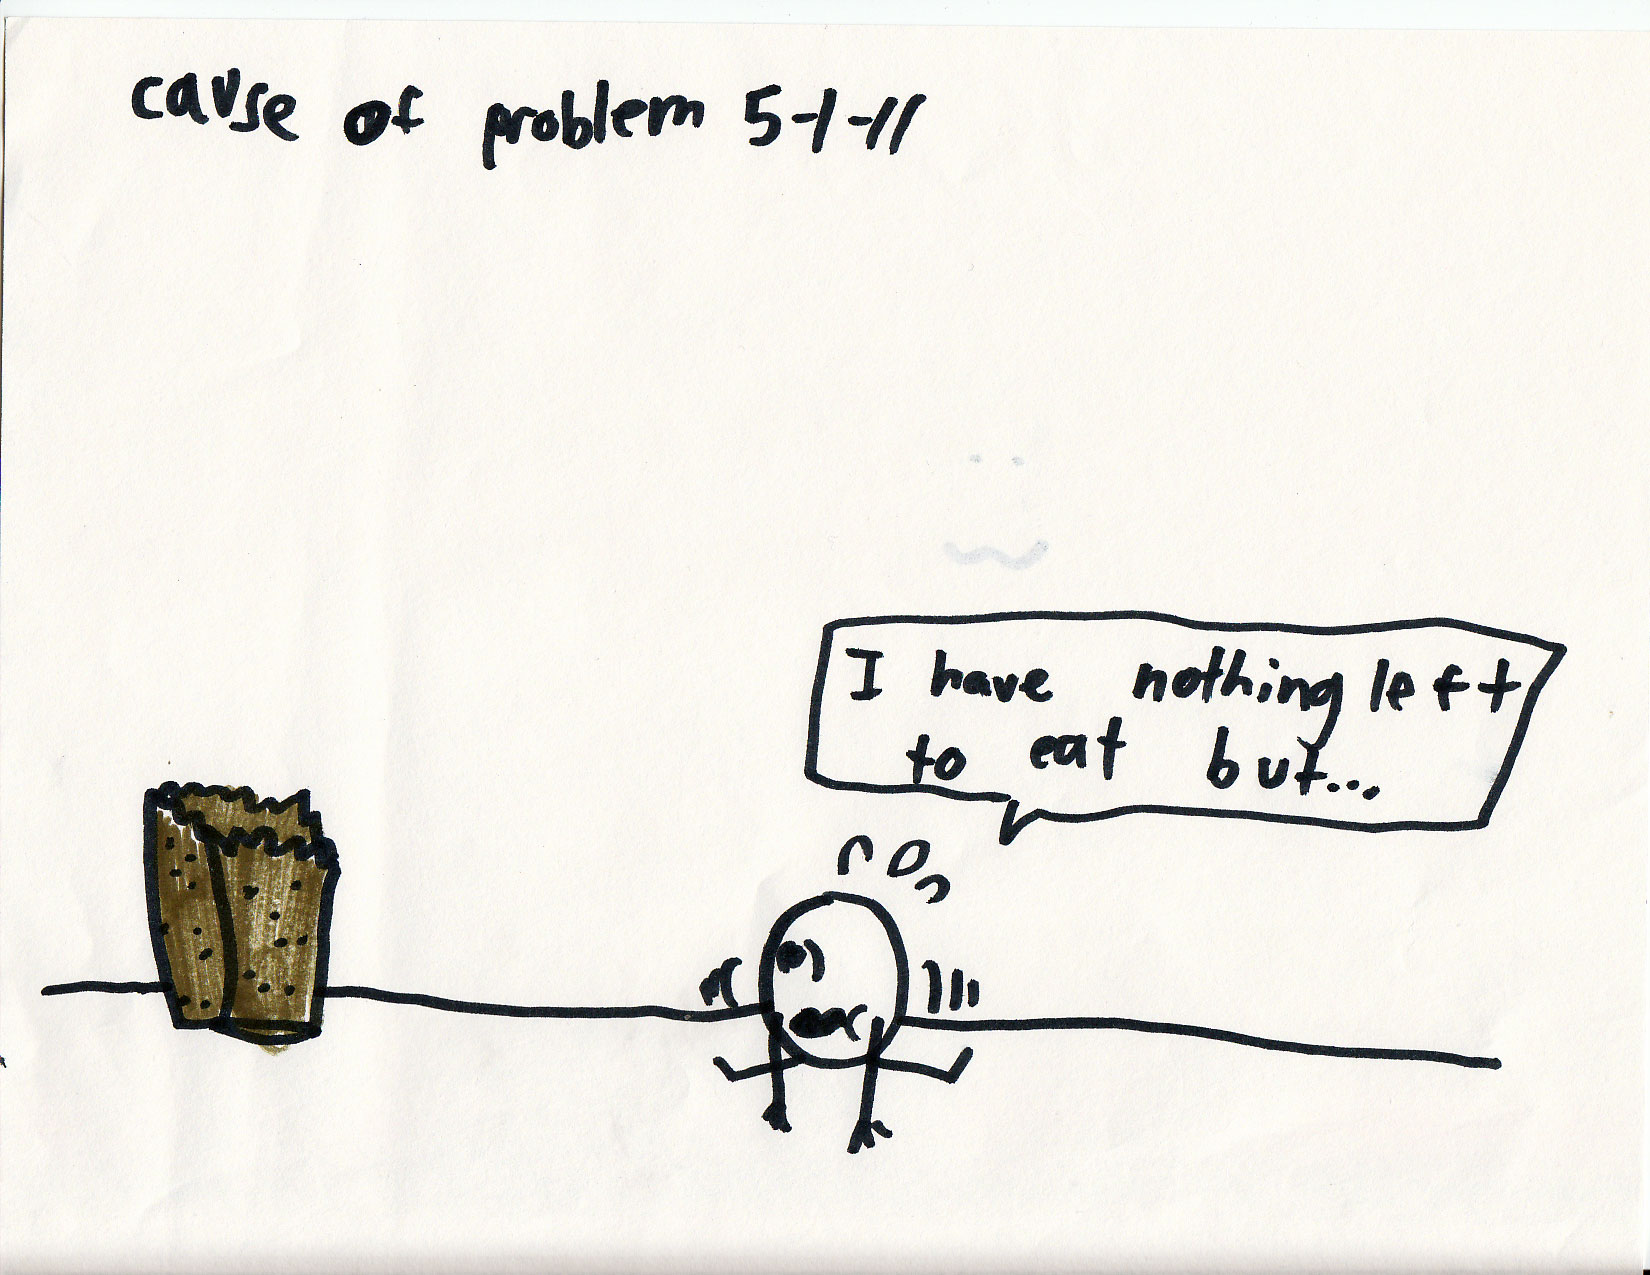 cause of problem 5-1-11
I have nothing left
to eat but...